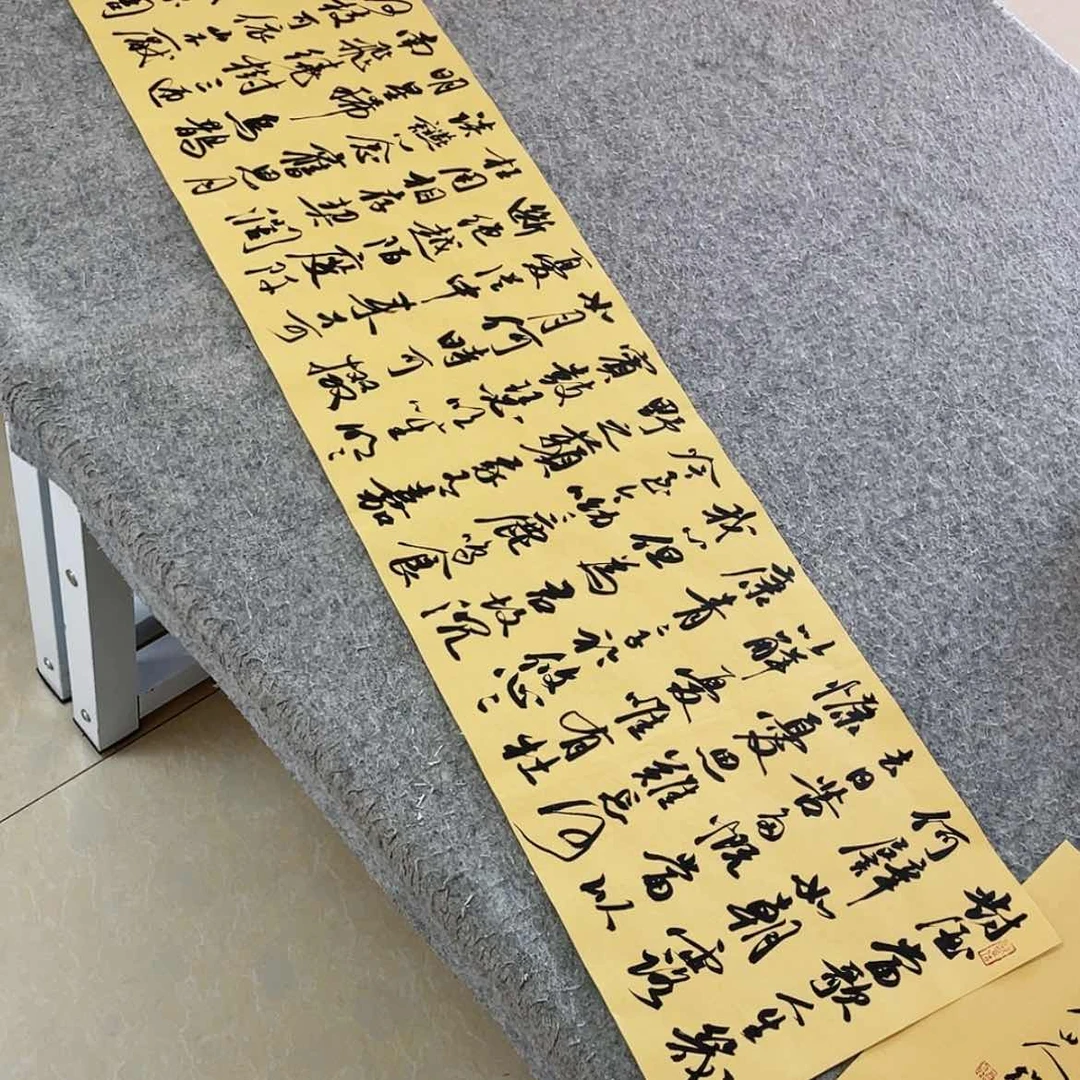 對酒當歌人生幾
何譬如朝露
去日苦多慨當以
慷憂思難忘何
以解憂唯有杜
康青青子衿悠悠
我心但為君故沉
吟至今呦呦鹿鳴食
野之蘋我有嘉
賓鼓瑟吹笙明明
如月何時可掇
憂從中來不可
斷絕越陌度阡
枉用相存契闊
談讌心念舊恩月
明星稀烏鵲
南飛繞樹三匝
何枝可依山不厭
周